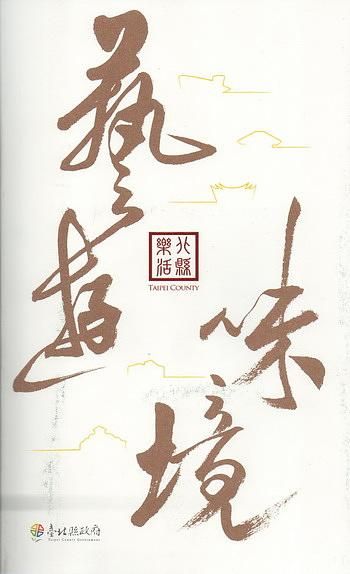 藝遊
味境
北縣
樂活
TAIPEI COUNTY
臺北縣政府
Taipei County Government